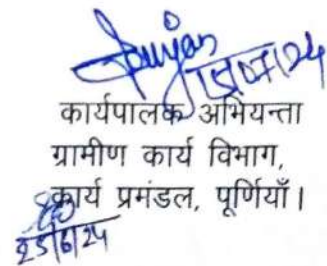 15/07/24
कार्यपालक अभियन्ता
ग्रामीण कार्य विभाग,
कार्य प्रमंडल, पूर्णियाँ।
25/6/24